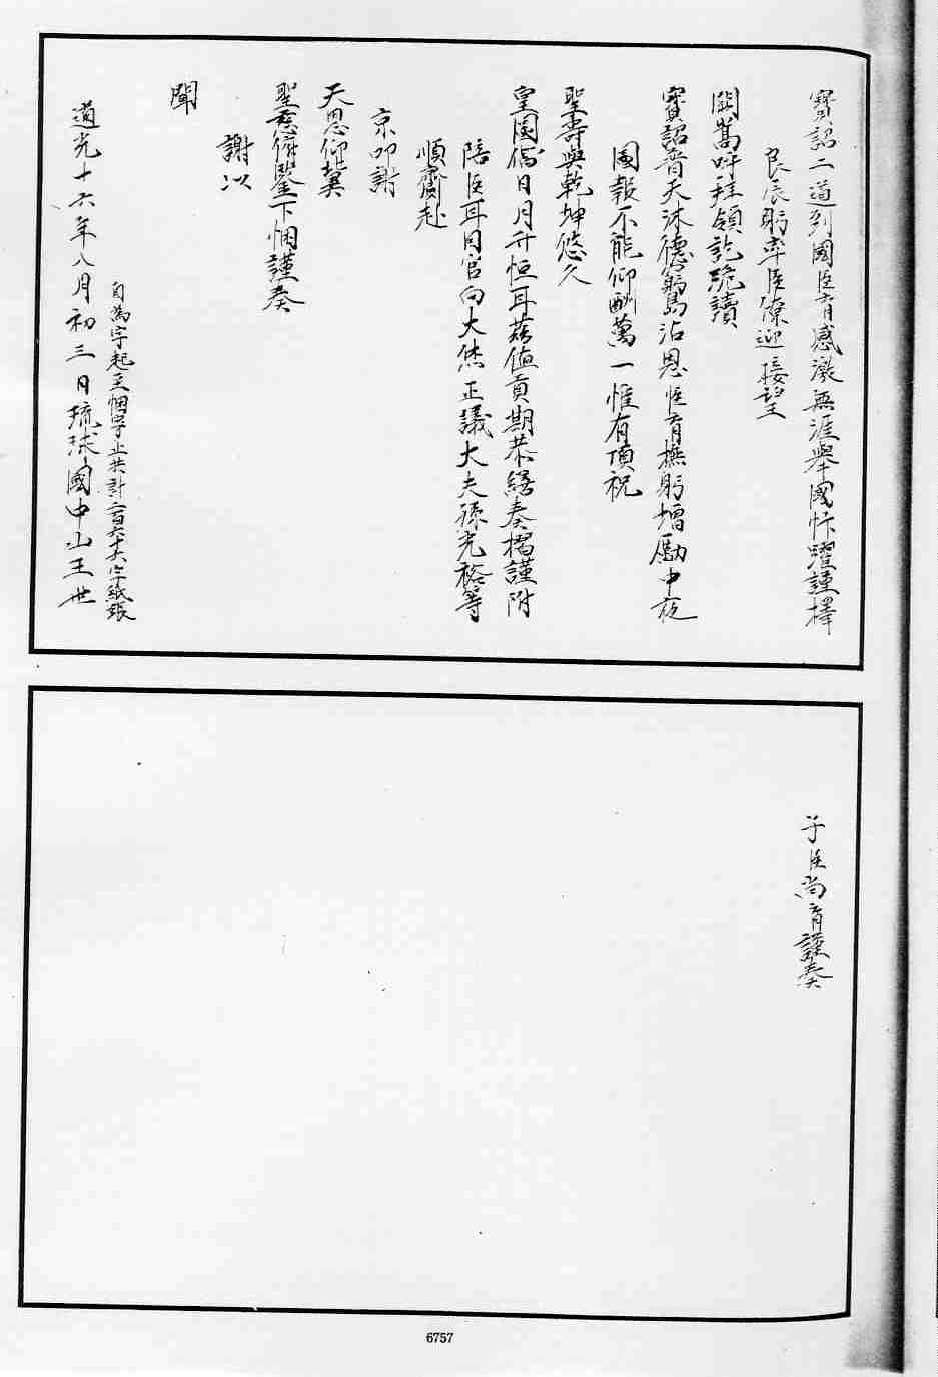 寶詔二道到國臣育感激無涯舉國忭躍謹擇
良辰躬率臣僚迎接望
闕嵩呼拜領訖跪讀
寶詔音天沐德窮島沾恩臣育撫躬增勵中夜
圖報不能仰酬萬一惟有頂祝
聖壽與乾坤悠久
皇圖偕日月升恒耳茲值貢期恭繕奏摺謹附
陪臣耳目官向大烋正議大夫孫光裕等
順齎赴
京叩謝
天恩仰冀
聖慈俯鑒下悃謹奏
謝以
聞
自為字起至悃字止共計二百六十六字紙張
道光十六年八月初三日琉球國中山王世
子臣尚育謹奏
6757